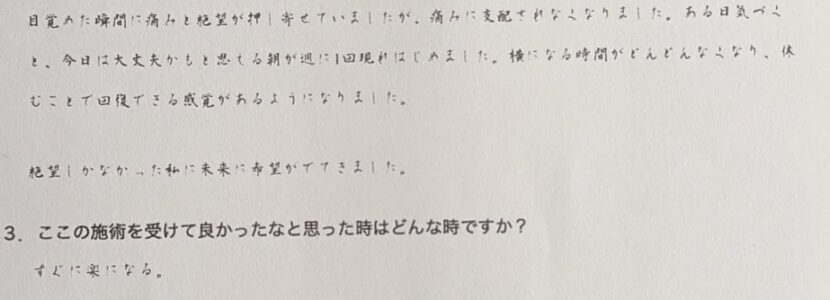 目覚めた瞬間に痛みと絶望が押し寄せていましたが、痛みに支配されなくなりました。ある日気づく
と、今日は大丈夫かもと思える朝が週に1回現れはじめました。横になる時間がどんどんなくなり、休
むことで回復できる感覚があるようになりました。
絶望しかなかった私に未来に希望がでてきました。
3. ここの施術を受けて良かったなと思った時はどんな時ですか？
すぐに楽になる。